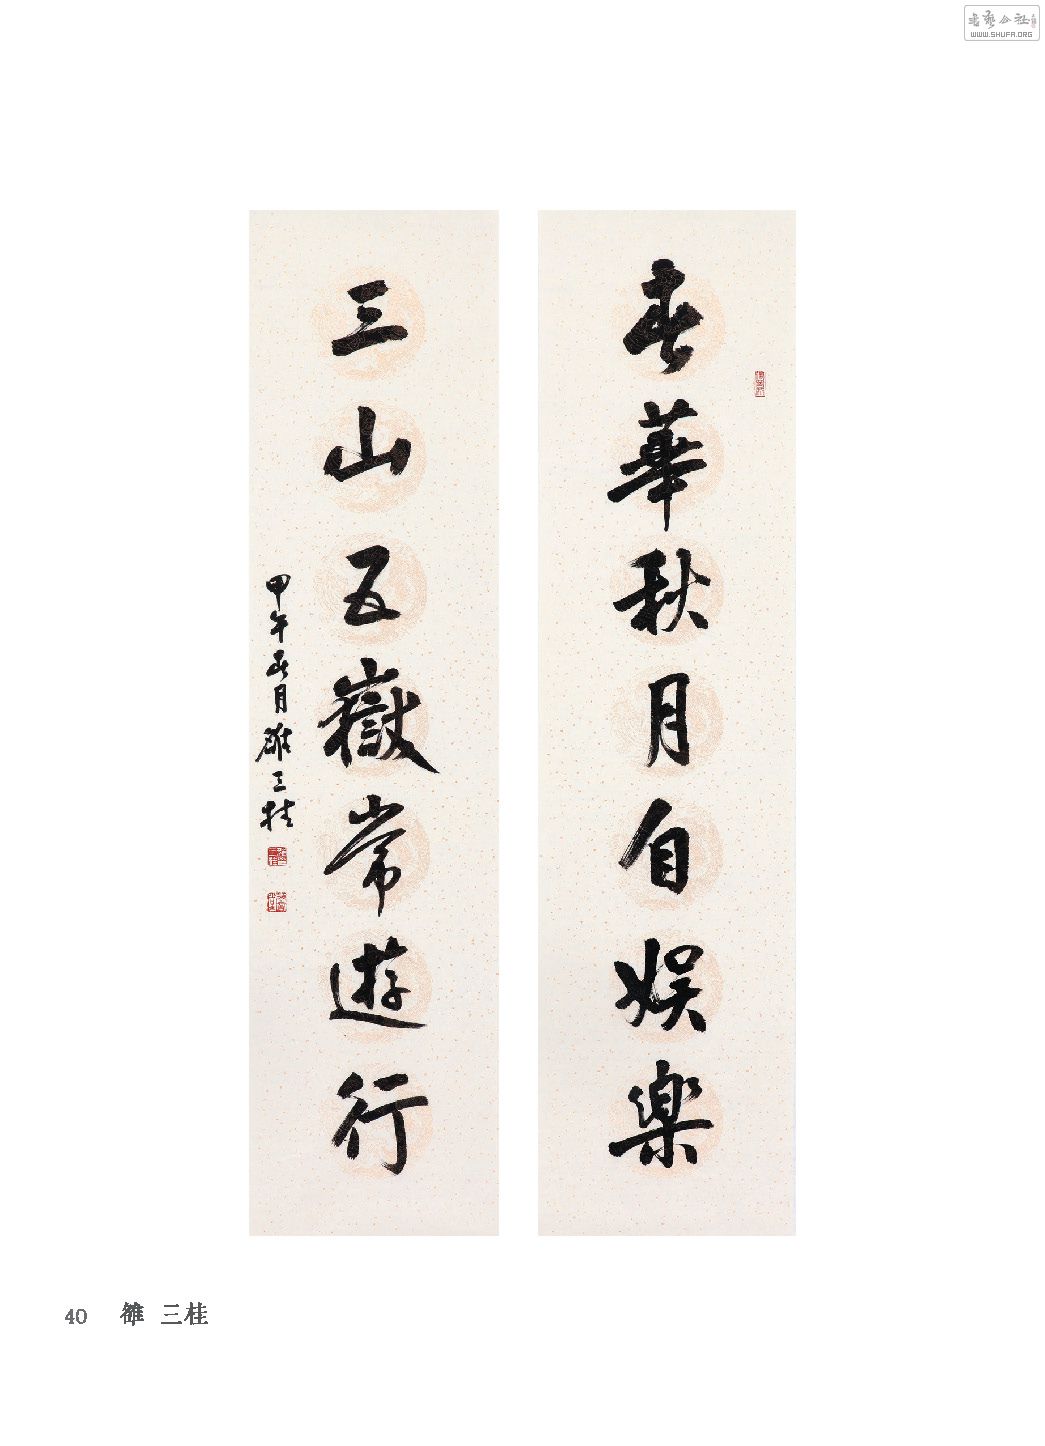 春華秋月自娯樂
三山五嶽常遊行
甲午春月雒三桂
40 雒 三桂
WWW.SHUFA.ORG